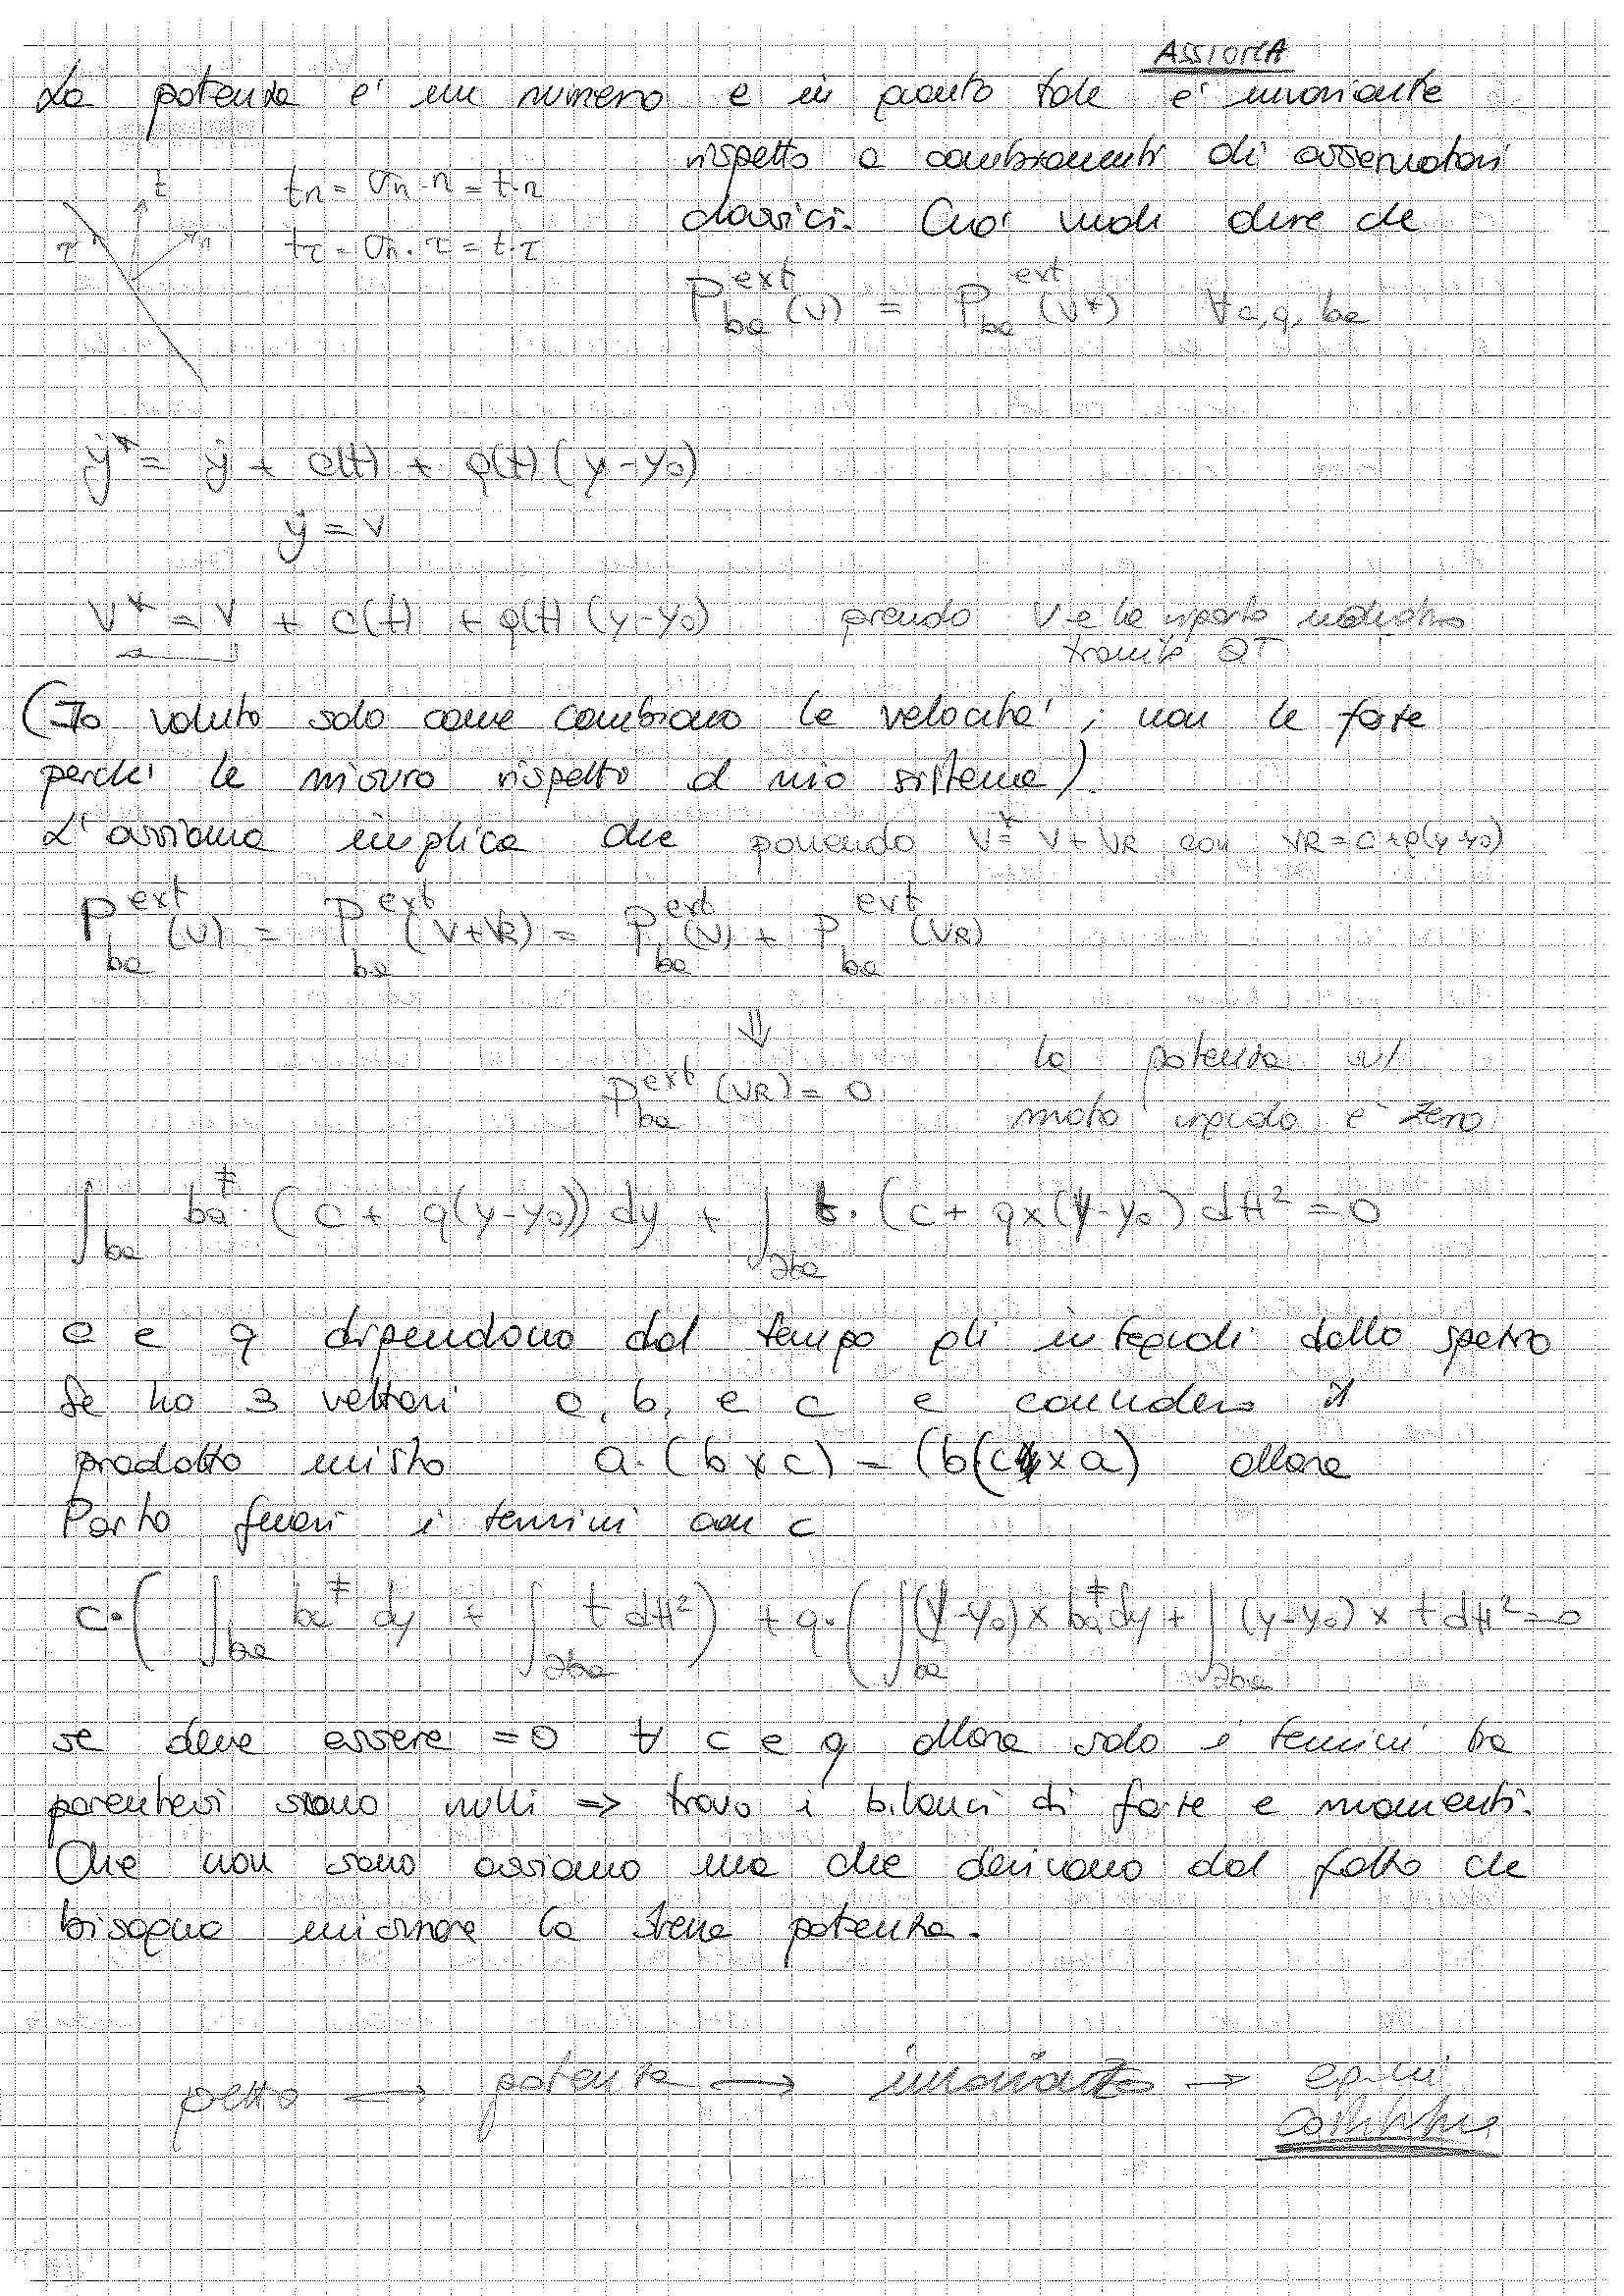 ASSIOMA
La potenza e' un numero e in quanto tale e' invariante
rispetto a cambiamenti di osservatori
classici. Cio' vuole dire che
t
τ n
tn = σn · n = t · n
tτ = σn · τ = t · τ
P^ext_be (v) = P^ext_be (v*) ∀ c, q, be
ẏ* = ẏ + c(t) + q(t) (y-y0)
ẏ = v
v* = v + c(t) + q(t) (y-y0) prendo v e la riporto indietro
tramite QT
(Io valuto solo come cambiano le velocita', non le forze
perche' le misuro rispetto al mio sistema).
L'assioma implica che ponendo v* = v + vR con vR = c + q(y-y0)
P^ext_be (v) = P^ext_be (v+vR) = P^ext_be (v) + P^ext_be (vR)
⇓
P^ext_be (vR) = 0
la potenza sul
moto rigido e' zero
∫_be be^‡ · (c + q(y-y0)) dy + ∫_∂be t · (c + q×(y-y0) dH² = 0
c e q dipendono dal tempo gli integrali dallo spazio
Se ho 3 vettori a, b, e c e considero il
prodotto misto a · (b × c) = (b(c × a) allora
Porto fuori i termini con c
c · ( ∫_be be^‡ dy + ∫_∂be t dH² ) + q · ( ∫_be (y-y0) × be^‡ dy + ∫_∂be (y-y0) × t dH² = 0
se deve essere = 0 ∀ c e q allora solo i termini tra
parentesi siano nulli => trovo i bilanci di forze e momenti.
Che non sono assiomi ma che derivano dal fatto che
bisogna misurare la stessa potenza.
potenza → invarianza → eq.ni
costitutive